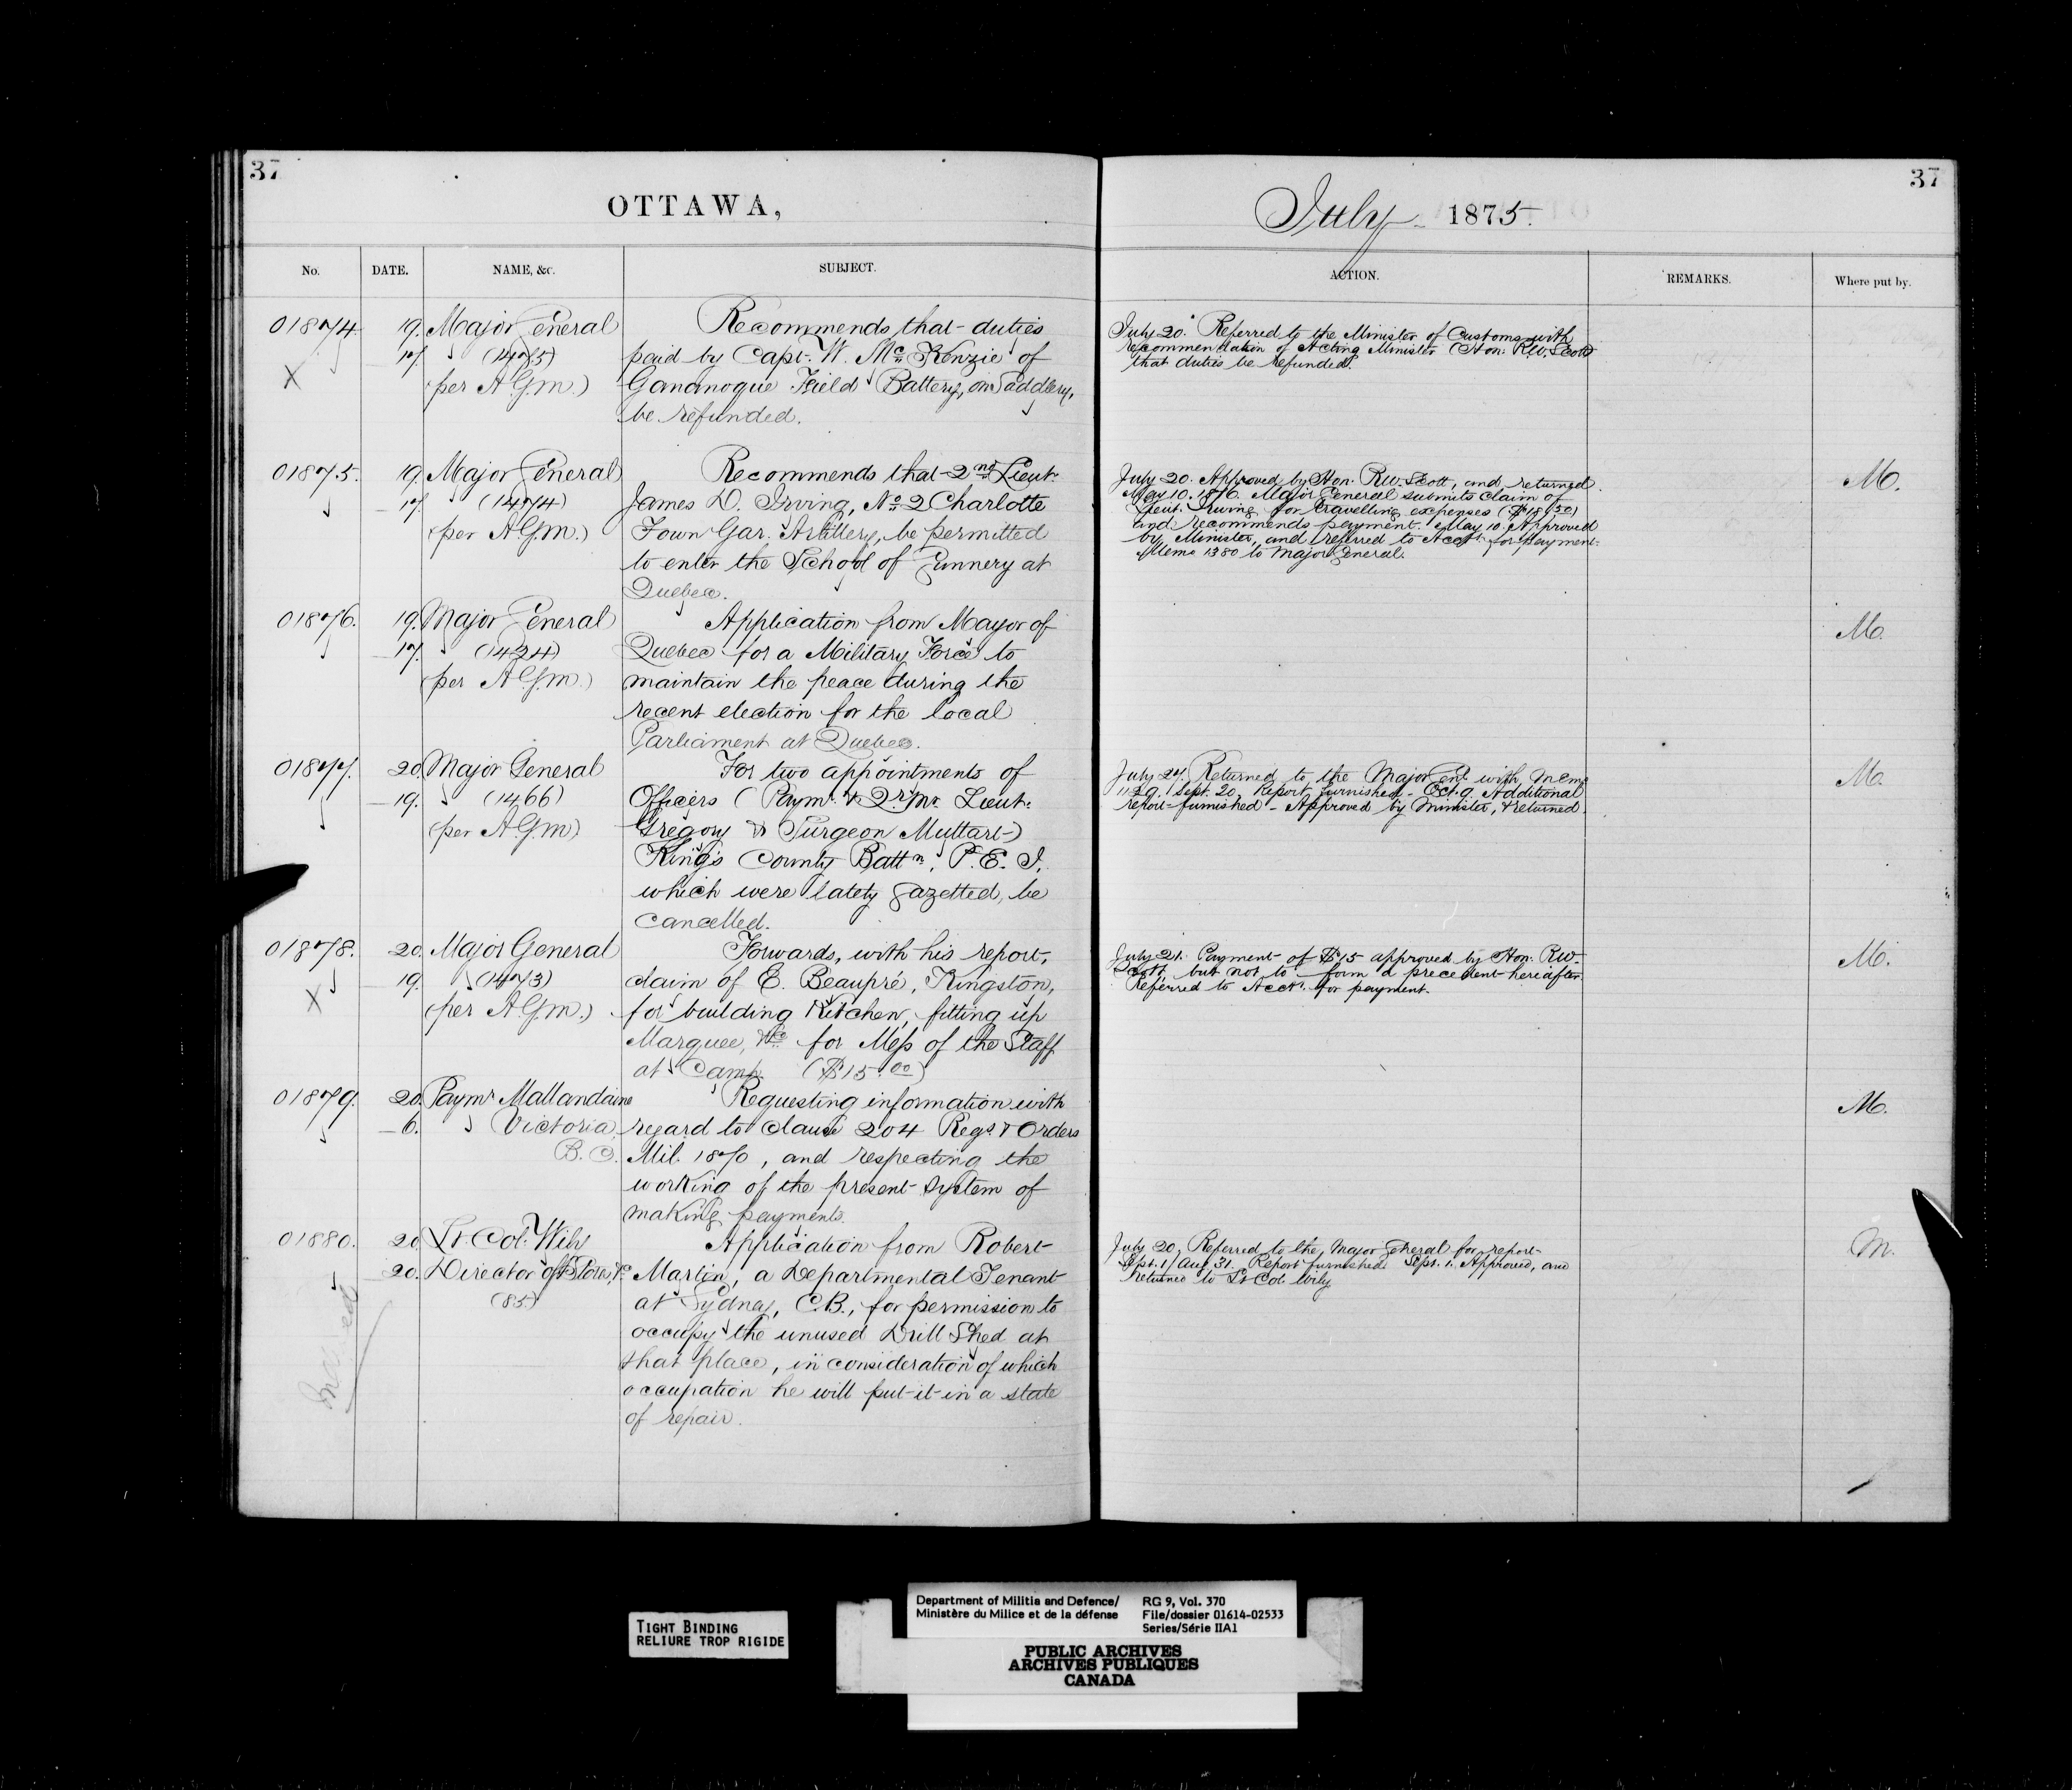 37
OTTAWA,
No.
DATE.
NAME, &c.
SUBJECT.
01874.
19.
17.
Major General
(1475)
(per A.G.m.)
X
Recommends that duties
paid by Capt. W. McKenzie of
Gananoque Field Battery, on Saddlery,
be refunded.
01875.
19.
17.
Major General
(1474)
(per A.G.m.)
Recommends that 2nd Lieut.
James D. Irving, No 2 Charlotte
Town Gar. Artillery, be permitted
to enter the School of Gunnery at
Quebec.
01876.
19.
17.
Major General
(1424)
(per A.G.m.)
Application from Mayor of
Quebec for a Military Force to
maintain the peace during the
recent election for the local
Parliament at Quebec.
01877.
20.
19.
Major General
(1466)
(per A.G.m)
For two appointments of
Officers (Paymr. & Qr. Mr. Lieut.
Gregory & Surgeon Muttart)
King's County Battn., P.E.I.
which were lately gazetted, be
cancelled.
01878.
20.
19.
Major General
(1473)
(per A.G.m.)
X
Forwards, with his report,
claim of E. Beaupré, Kingston,
for building Kitchen, fitting up
Marquee, &c for Mess of the Staff
at Camp. ($15.00)
01879.
20.
6.
Paymr Mallandaine
Victoria,
B.C.
Requesting information with
regard to clause 204 Regs. & Orders
Mil. 1870, and respecting the
working of the present system of
making payments.
01880.
20.
20.
Lt. Col. Wily
Director of Stores, &c
(85)
Application from Robert
Martin, a Departmental Tenant
at Sydney, C.B., for permission to
occupy the unused Drill Shed at
that place, in consideration of which
occupation he will put it in a state
of repair.
37
July 1875.
ACTION.
REMARKS.
Where put by.
July 20. Referred to the Minister of Customs with
recommendation of Acting Minister (Hon: R.W. Scott)
that duties be refunded.
July 20. Approved by Hon. R.W. Scott, and returned.
May 10. 1876. Major General submits claim of
Lieut. Irving for travelling expenses
and recommends payment. May 10. Approved
by Minister, and referred to Acct. for payment.
Memo 1380 to Major General.
M.
M.
July 27. Returned to the Major Genl. with memo
1129. Sept. 20. Report furnished - Oct. 9. Additional
report furnished - Approved by Minister, & returned.
M.
July 21. Payment of $15 approved by Hon. R.W.
Scott, but not to form a precedent hereafter.
Referred to Acct. for payment.
M.
M.
July 20, Referred to the Major General for report
Sept. 1/ Aug 31. Report furnished. Sept. 1. Approved, and
returned to Lt Col. Wily
M.
TIGHT BINDING
RELIURE TROP RIGIDE
Department of Militia and Defence/
Ministère du Milice et de la défense
RG 9, Vol. 370
File/dossier 01614-02533
Series/Série IIA1
PUBLIC ARCHIVES
ARCHIVES PUBLIQUES
CANADA